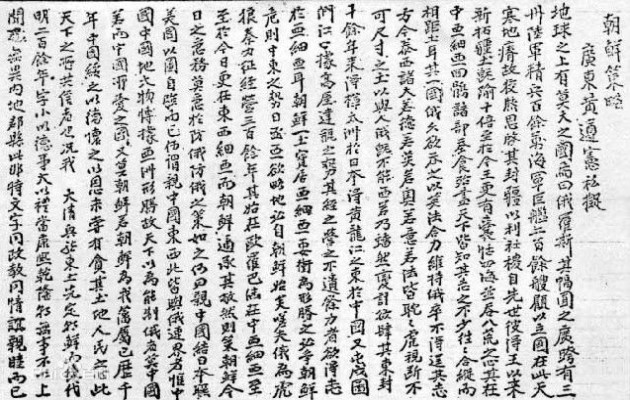 朝鮮策略
廣東黃遵憲私擬
地球之上有莫大之國焉曰俄羅斯其幅圓之廣跨有三
洲陸軍精兵百餘萬海軍巨艦二百餘艘顧以立國在北天
寒地瘠故狡焉思啟其封疆以利社稷自先世彼得王以來
新拓疆土既踰十倍至於今王更有囊括四海並吞八荒之心其在
中亞細亞回鶻諸部蠶食殆盡天下皆知其志之不少往往合縱而
相距土耳其一國俄久欲吞之以英法合力維持俄卒不得逞其志
方今泰西諸大若德若英若奧若意若法皆耽耽虎視斷不
可尺寸之土以與人俄既不能西略乃幡然變計欲肆其東封
十餘年來得樺太洲於日本得黃龍江之東於中國又屯戍圖
們江口據高屋建瓴之勢其經之營之不遺餘力者欲得志
於亞細亞耳朝鮮一土實居亞細亞要衝為形勝之必爭朝鮮
危則中東之勢日亟欲略地必自朝鮮始矣嗟夫俄為虎
狼秦力征經營三百餘年其始在歐羅巴繼在中亞細亞至
於今日更在東亞細亞而朝鮮適承其敝然則策朝鮮今
日之急務莫急於防俄防俄之策如之何曰親中國結日本聯
美國以圖自強而已何謂親中國東西北皆與俄連界者惟中
國中國地大物博據亞洲形勝故天下以為能制俄者莫中國
若而中國所愛之國又莫朝鮮若朝鮮為我藩屬已歷千
年中國綏之以德懷之以恩未嘗有貪其土地人民之心此
天下之所共信者也況我 大清龍興東土先定朝鮮而後伐
明二百餘年字小以德事大以禮當康熙乾隆朝無事不以上
聞無異內地郡縣此非特文字同政教同情誼親睦而已